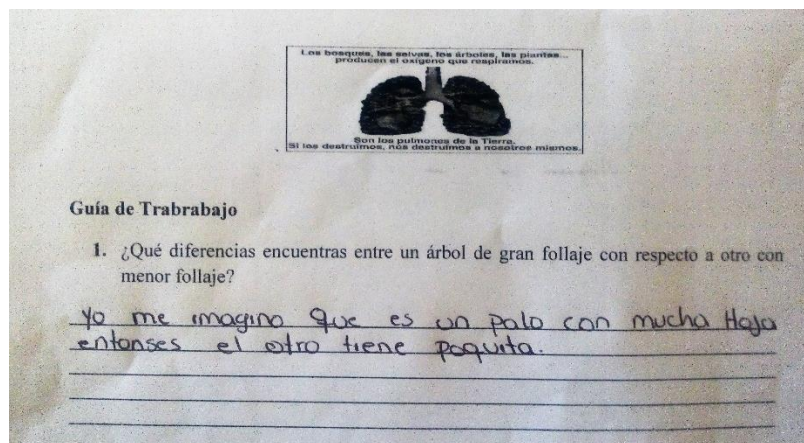 Los bosques, las selvas, los árboles, las plantas...
producen el oxígeno que respiramos.
Son los pulmones de la Tierra.
Si los destruimos, nos destruimos a nosotros mismos.
Guía de Trabrabajo
1. ¿Qué diferencias encuentras entre un árbol de gran follaje con respecto a otro con
menor follaje?
Yo me imagino que es un palo con mucha Hoja
entonses el otro tiene poquita.